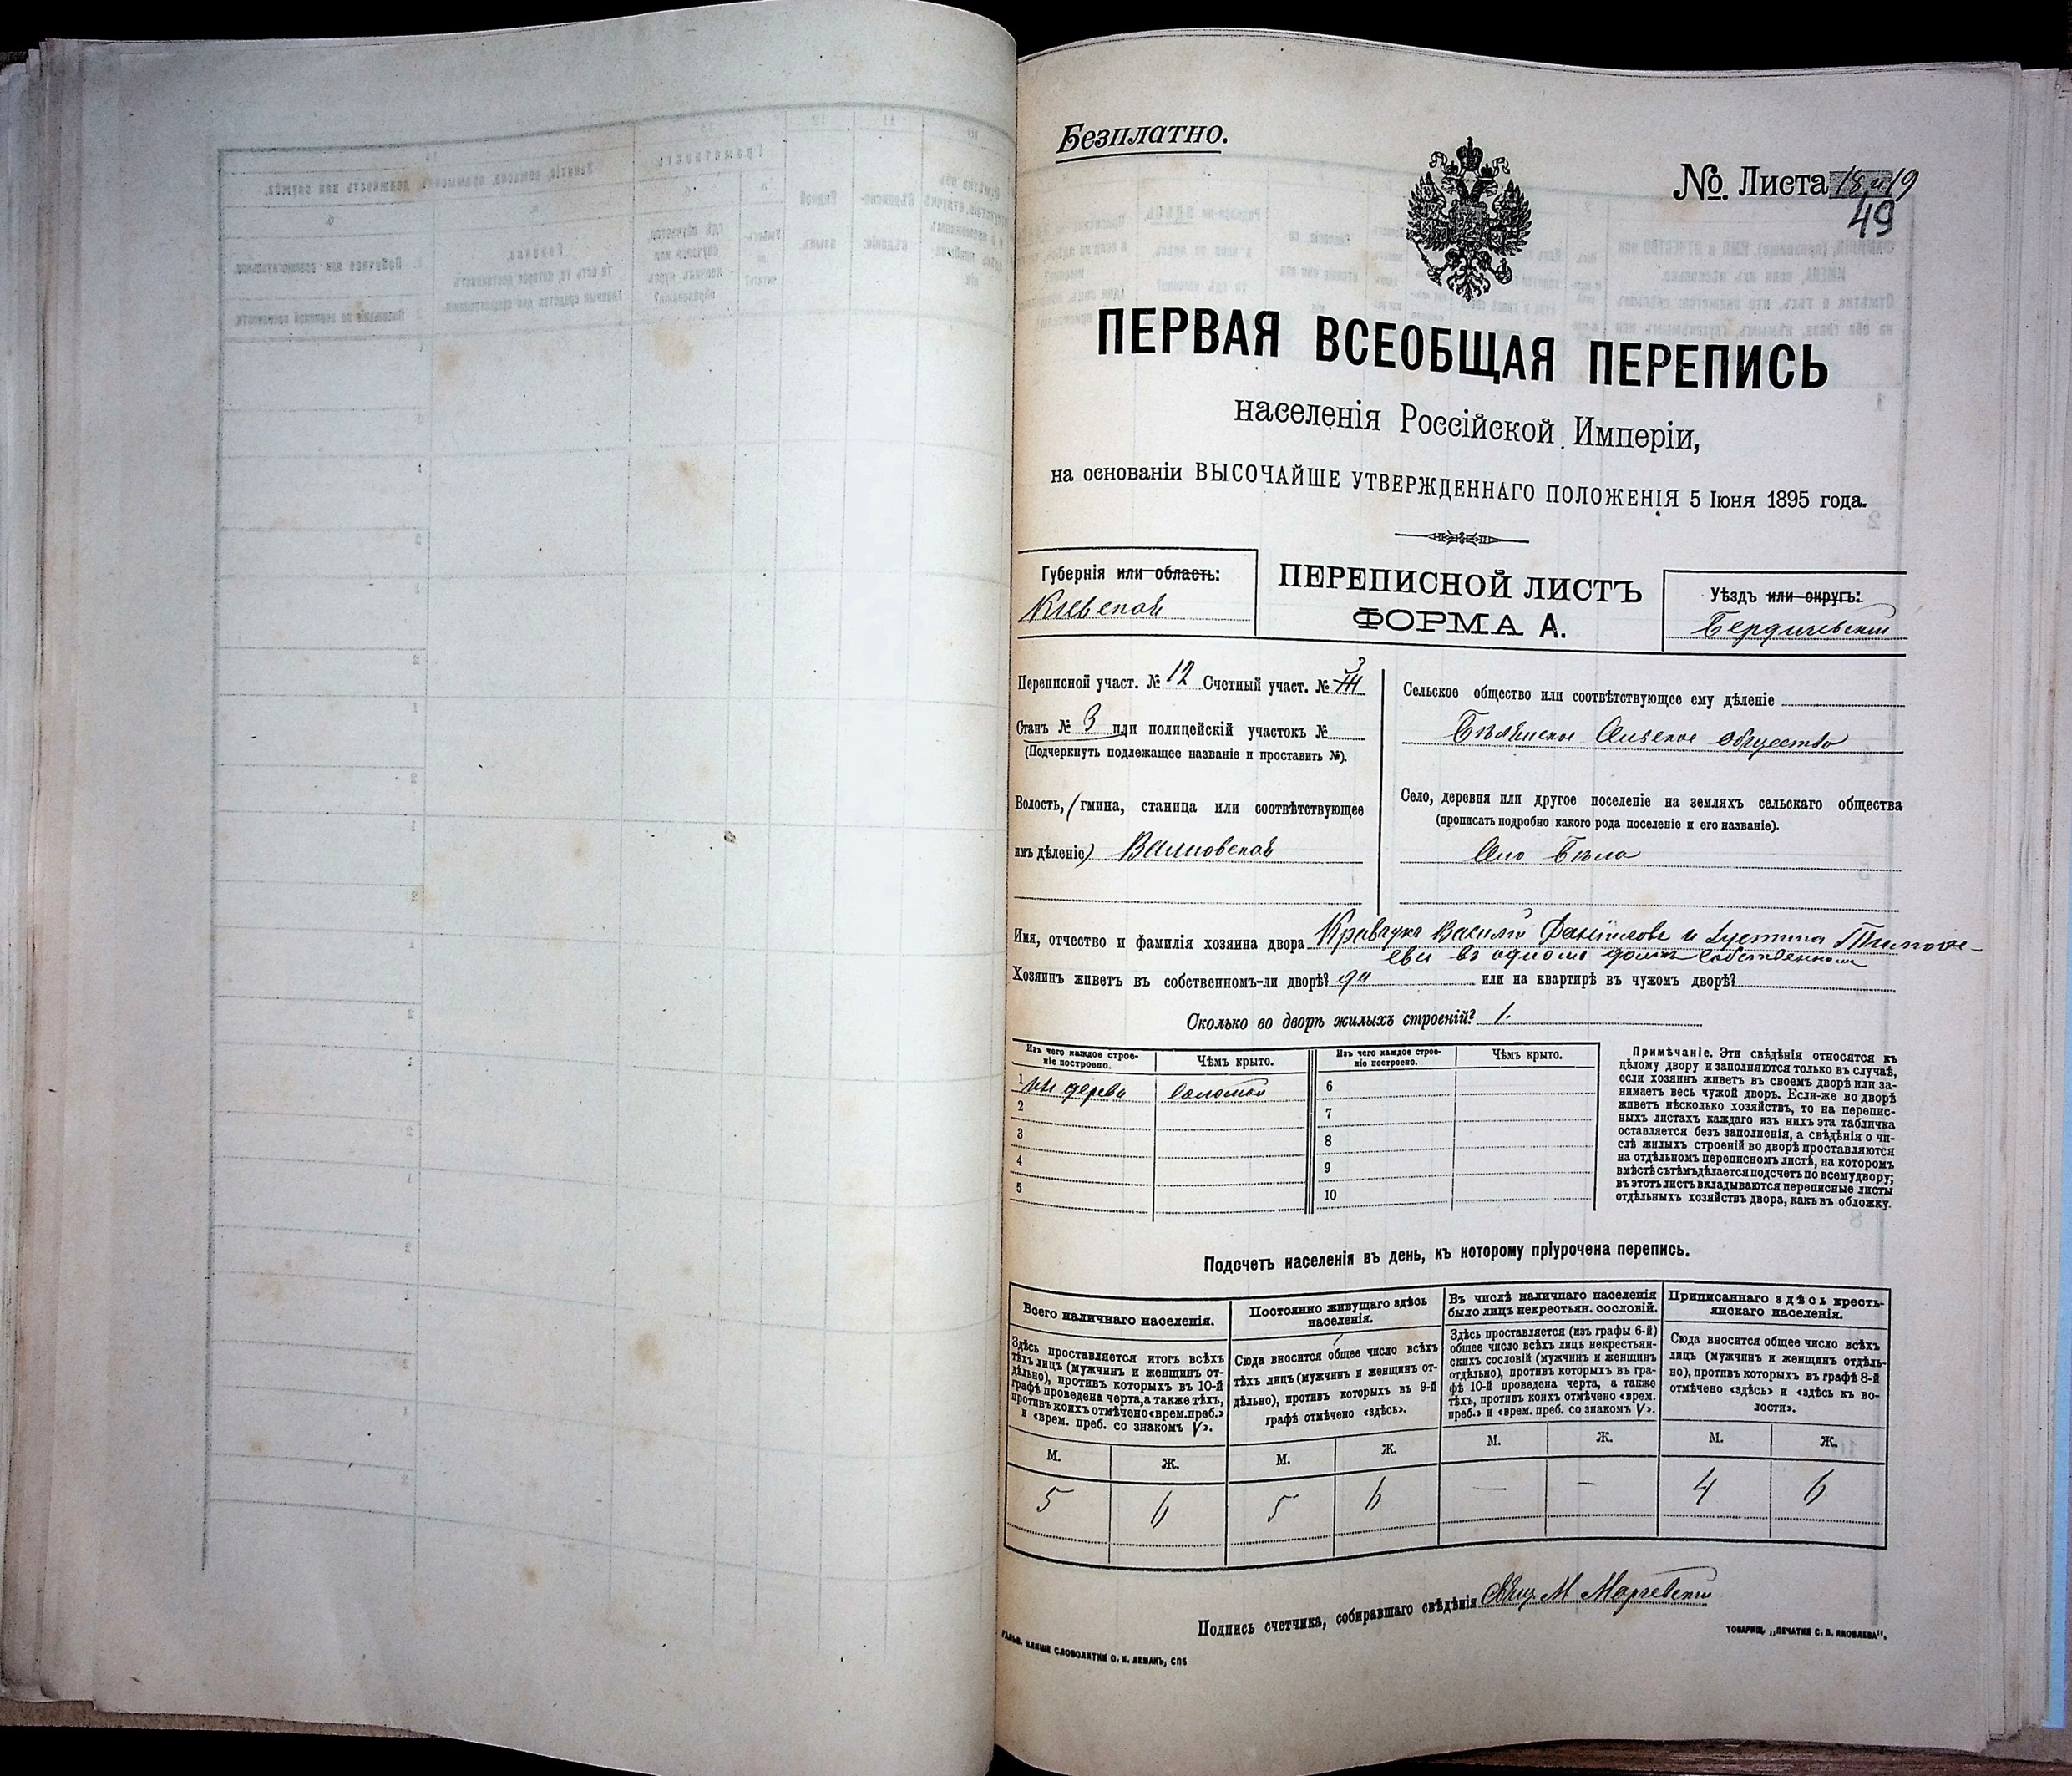 Безплатно.
№ Листа 18 и 19
49
ПЕРВАЯ ВСЕОБЩАЯ ПЕРЕПИСЬ
населенія Россійской Имперіи,
на основаніи ВЫСОЧАЙШЕ УТВЕРЖДЕННАГО ПОЛОЖЕНІЯ 5 Іюня 1895 года.
Губернія или область:
Кіевская
ПЕРЕПИСНОЙ ЛИСТЪ
ФОРМА А.
Уѣздъ или округъ:
Бердичевскій
Переписной участ. № 12 Счетный участ. № 3
Станъ № 3 или полицейскій участокъ №
(Подчеркнуть подлежащее названіе и проставить №).
Волость, (гмина, станица или соотвѣтствующее
имъ дѣленіе)
Сельское общество или соотвѣтствующее ему дѣленіе
общество
Село, деревня или другое поселеніе на земляхъ сельскаго общества
(прописать подробно какого рода поселеніе и его названіе).
Имя, отчество и фамилія хозяина двора Кравчукъ Василій Даніиловъ и
въ одномъ домѣ собственномъ
Хозяинъ живетъ въ собственномъ-ли дворѣ? да или на квартирѣ въ чужомъ дворѣ?
Сколько во дворѣ жилыхъ строеній? 1.
Изъ чего каждое строе-
ніе построено.
Чѣмъ крыто.
Изъ чего каждое строе-
ніе построено.
Чѣмъ крыто.
1 изъ дерева соломой
2
3
4
5
6
7
8
9
10
Примѣчаніе. Эти свѣдѣнія относятся къ
цѣлому двору и заполняются только въ случаѣ,
если хозяинъ живетъ въ своемъ дворѣ или за-
нимаетъ весь чужой дворъ. Если-же во дворѣ
живетъ нѣсколько хозяйствъ, то на перепис-
ныхъ листахъ каждаго изъ нихъ эта табличка
оставляется безъ заполненія, а свѣдѣнія о чи-
слѣ жилыхъ строеній во дворѣ проставляются
на отдѣльномъ переписномъ листѣ, на которомъ
вмѣстѣ съ тѣмъ дѣлается подсчетъ по всему двору;
въ этотъ листъ вкладываются переписные листы
отдѣльныхъ хозяйствъ двора, какъ въ обложку.
Подсчетъ населенія въ день, къ которому пріурочена перепись.
Всего наличнаго населенія.
Здѣсь проставляется итогъ всѣхъ
тѣхъ лицъ (мужчинъ и женщинъ от-
дѣльно), противъ которыхъ въ 10-й
графѣ проведена черта, а также тѣхъ,
противъ коихъ отмѣчено «врем. преб.»
и «врем. преб. со знакомъ V».
Постоянно живущаго здѣсь
населенія.
Сюда вносится общее число всѣхъ
тѣхъ лицъ (мужчинъ и женщинъ от-
дѣльно), противъ которыхъ въ 9-й
графѣ отмѣчено «здѣсь».
Въ числѣ наличнаго населенія
было лицъ некрестьян. сословій.
Здѣсь проставляется (изъ графы 6-й)
общее число всѣхъ лицъ некрестьян-
скихъ сословій (мужчинъ и женщинъ
отдѣльно), противъ которыхъ въ гра-
фѣ 10-й проведена черта, а также
тѣхъ, противъ коихъ отмѣчено «врем.
преб.» и «врем. преб. со знакомъ V».
Приписаннаго здѣсь кресть-
янскаго населенія.
Сюда вносится общее число всѣхъ
лицъ (мужчинъ и женщинъ отдѣль-
но), противъ которыхъ въ графѣ 8-й
отмѣчено «здѣсь» и «здѣсь къ во-
лости».
М. Ж. М. Ж. М. Ж. М. Ж.
5 6 5 6 — — 4 6
Подпись счетчика, собиравшаго свѣдѣнія
ГАЛЬВ. КЛИШЕ СЛОВОЛИТНИ О. И. ЛЕМАНЪ, СПБ
ТОВАРИЩ. „ПЕЧАТНЯ С. П. ЯКОВЛЕВА".